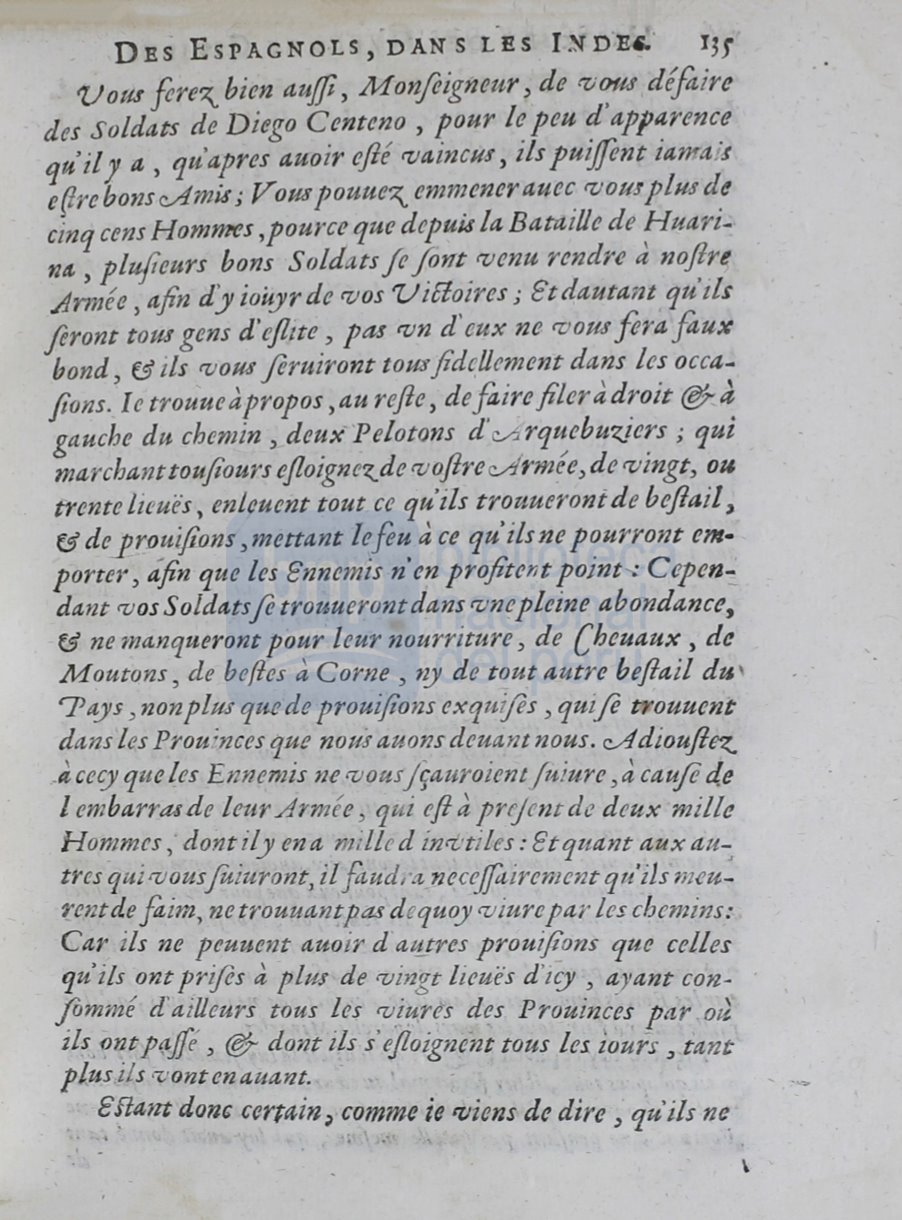 DES ESPAGNOLS, DANS LES INDES. 135
Vous ferez bien auſſi, Monſeigneur, de vous défaire
des Soldats de Diego Centeno, pour le peu d'apparence
qu'il y a, qu'apres auoir eſté vaincus, ils puiſſent iamais
eſtre bons Amis; Vous pouuez emmener auec vous plus de
cinq cens Hommes, pource que depuis la Bataille de Huari-
na, pluſieurs bons Soldats ſe ſont venu rendre à noſtre
Armée, afin d'y ioüyr de vos Victoires; Et dautant qu'ils
ſeront tous gens d'eſlite, pas vn d'eux ne vous fera faux
bond, & ils vous ſeruiront tous fidellement dans les occa-
ſions. Ie trouue à propos, au reſte, de faire filer à droit & à
gauche du chemin, deux Pelotons d'Arquebuziers; qui
marchant touſiours eſloignez de voſtre Armée, de vingt, ou
trente lieuës, enleuent tout ce qu'ils trouueront de beſtail,
& de prouiſions, mettant le feu à ce qu'ils ne pourront em-
porter, afin que les Ennemis n'en profitent point: Cepen-
dant vos Soldats ſe trouueront dans vne pleine abondance,
& ne manqueront pour leur nourriture, de Cheuaux, de
Moutons, de beſtes à Corne, ny de tout autre beſtail du
Pays, non plus que de prouiſions exquiſes, qui ſe trouuent
dans les Prouinces que nous auons deuant nous. Adiouſtez
à cecy que les Ennemis ne vous ſçauroient ſuiure, à cauſe de
l'embarras de leur Armée, qui eſt à preſent de deux mille
Hommes, dont il y en a mille d'inutiles: Et quant aux au-
tres qui vous ſuiuront, il faudra neceſſairement qu'ils meu-
rent de faim, ne trouuant pas dequoy viure par les chemins:
Car ils ne peuuent auoir d'autres prouiſions que celles
qu'ils ont priſes à plus de vingt lieuës d'icy, ayant con-
ſommé d'ailleurs tous les viures des Prouinces par où
ils ont paſſé, & dont ils s'eſloignent tous les iours, tant
plus ils vont en auant.
Eſtant donc certain, comme ie viens de dire, qu'ils ne
biblioteca
nacional
del perú